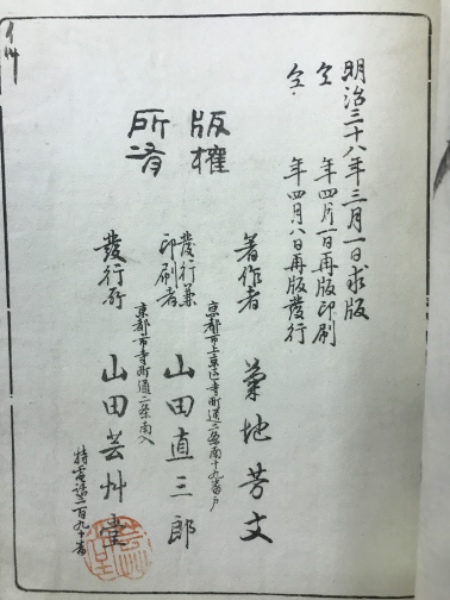 明治三十八年三月一日求版
仝 年四月一日再版印刷
仝 年四月八日再版發行
版權
所有
著作者 菊地芳文
京都市上京區寺町通二條南十九番戸
發行兼
印刷者 山田直三郎
京都市寺町通二条南入
發行所 山田芸艸堂
特電話二百九十番